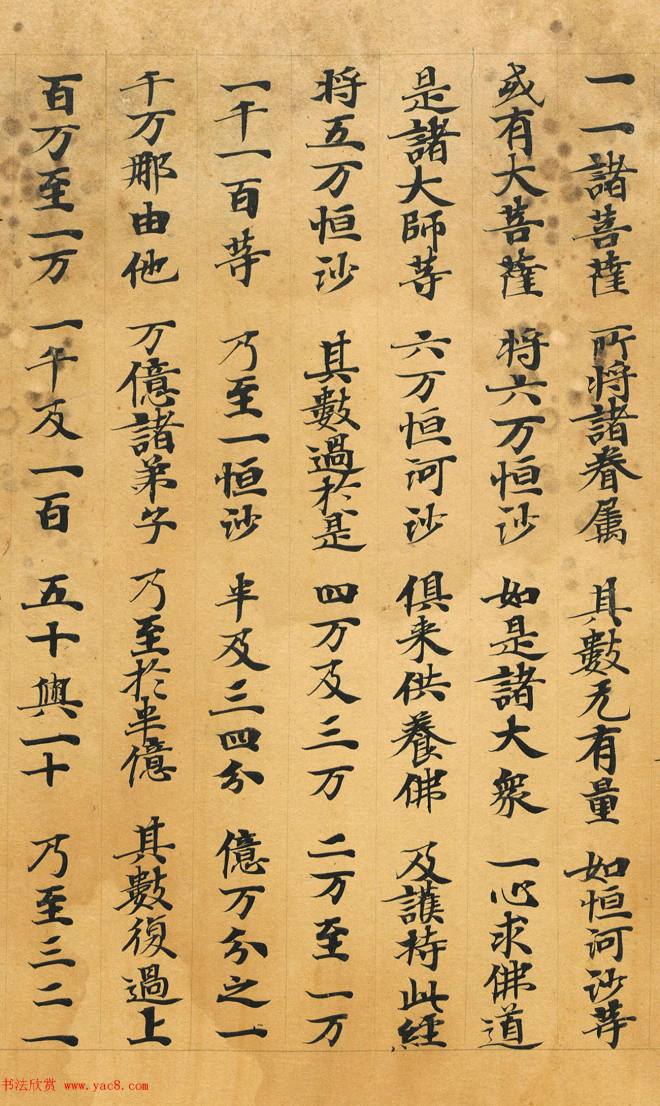 一一諸菩薩 所将諸眷属 其數无有量 如恒河沙等
或有大菩薩 将六万恒沙 如是諸大衆 一心求佛道
是諸大師等 六万恒河沙 俱来供養佛 及護持此經
将五万恒沙 其數過於是 四万及三万 二万至一万
一千一百等 乃至一恒沙 半及三四分 億万分之一
千万那由他 万億諸弟子 乃至於半億 其數復過上
百万至一万 一千及一百 五十與一十 乃至三二一
书法欣赏 www.yac8.com